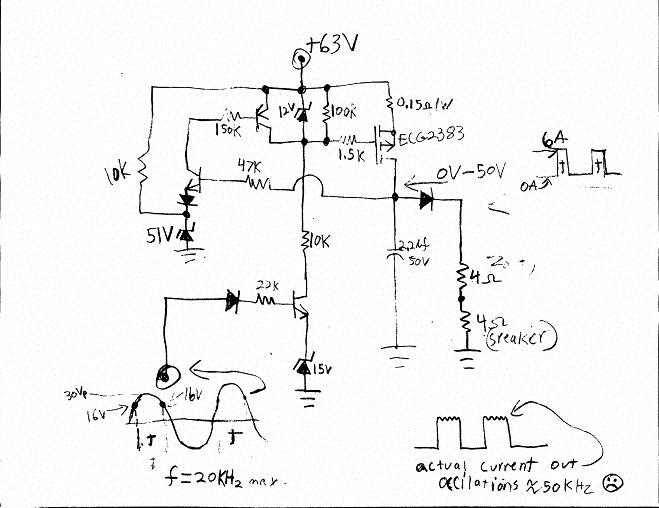 +63V
12V
100K
0.15Ω/1W
150K
1.5K
ECG2383
6A
T
T
0A
10K
47K
0V-50V
51V
10K
50V
4Ω
22K
4Ω
15V
30Vp
16V
16V
T
T
f=20KHz max.
actual current out
ocilations ≈50KHz